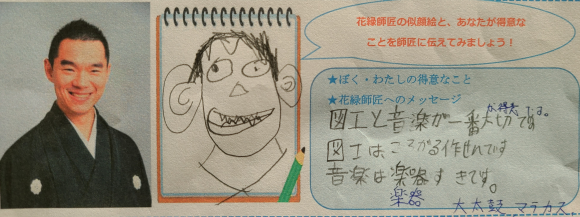 花緑師匠の似顔絵と、あなたが得意な
ことを師匠に伝えてみましょう！
★ぼく・わたしの得意なこと
★花緑師匠へのメッセージ
が得意です。
図工と音楽が一番大切です
図工は
作せんです
音楽は楽器すきです。
楽器
大太鼓 マラカス